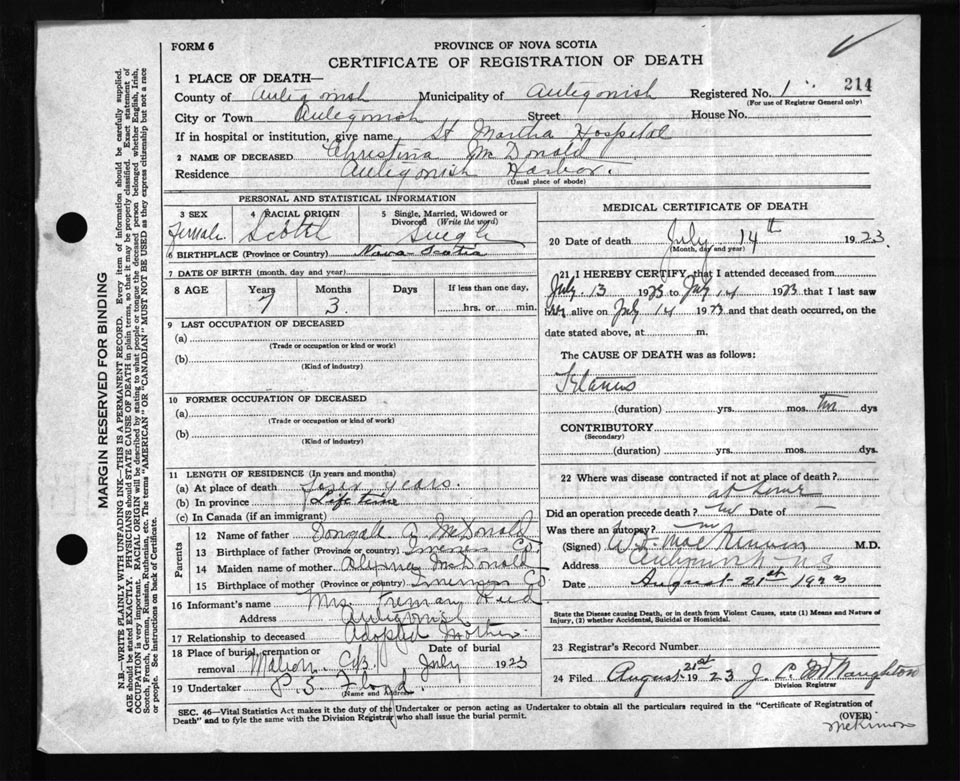 FORM 6
PROVINCE OF NOVA SCOTIA
CERTIFICATE OF REGISTRATION OF DEATH
214
1 PLACE OF DEATH—
County of Antigonish Municipality of Antigonish Registered No. 1
(For use of Registrar General only)
City or Town Antigonish Street House No.
If in hospital or institution, give name St Martha Hospital
2 NAME OF DECEASED Christina McDonald
Residence Antigonish Harbor.
(Usual place of abode)
PERSONAL AND STATISTICAL INFORMATION
3 SEX 4 RACIAL ORIGIN 5 Single, Married, Widowed or
Divorced (Write the word)
Female Scotch Single
6 BIRTHPLACE (Province or Country) Nova Scotia
7 DATE OF BIRTH (month, day and year)
8 AGE Years Months Days If less than one day,
7 3 hrs. or min.
9 LAST OCCUPATION OF DECEASED
(a)
(Trade or occupation or kind or work)
(b)
(Kind of industry)
10 FORMER OCCUPATION OF DECEASED
(a)
(Trade or occupation or kind of work)
(b)
(Kind of industry)
11 LENGTH OF RESIDENCE (In years and months)
(a) At place of death years.
(b) In province Life time
(c) In Canada (if an immigrant)
Parents
12 Name of father McDonald
13 Birthplace of father (Province or country) Inverness Co.
14 Maiden name of mother McDonald
15 Birthplace of mother (Province or country) Inverness Co
16 Informant's name Mrs.
Address Antigonish
17 Relationship to deceased Adopted Mother
18 Place of burial, cremation or Date of burial
removal Mabou. C.B. July 1923
19 Undertaker P. S. Floyd.
(Name and Address)
MEDICAL CERTIFICATE OF DEATH
20 Date of death July 14th 1923.
(Month, day and year)
21 I HEREBY CERTIFY, that I attended deceased from
July 13 1923 to July 14 1923 that I last saw
her alive on July 14 1923 and that death occurred, on the
date stated above, at m.
The CAUSE OF DEATH was as follows:
Tetanus
(duration) yrs. mos. dys
CONTRIBUTORY
(Secondary)
(duration) yrs. mos. dys.
22 Where was disease contracted if not at place of death?
at home
Did an operation precede death? no Date of
Was there an autopsy? no
(Signed) W. F. MacKinnon M.D.
Address Antigonish N S
Date August 21st 1923
State the Disease causing Death, or in death from Violent Causes, state (1) Means and Nature of
Injury, (2) whether Accidental, Suicidal or Homicidal.
23 Registrar's Record Number
24 Filed August 21st 1923 J. C. McNaughton
Division Registrar
SEC. 46—Vital Statistics Act makes it the duty of the Undertaker or person acting as Undertaker to obtain all the particulars required in the "Certificate of Registration of
Death" and to fyle the same with the Division Registrar who shall issue the burial permit.
(OVER)
McKinnon
MARGIN RESERVED FOR BINDING
N.B.—WRITE PLAINLY WITH UNFADING INK—THIS IS A PERMANENT RECORD. Every item of information should be carefully supplied.
AGE should be stated EXACTLY. PHYSICIANS should STATE CAUSE OF DEATH in plain terms, so that it may be properly classified. Exact statement of
OCCUPATION is very important. RACIAL ORIGIN will be described by stating to what people or tongue the deceased person belonged whether English, Irish,
Scotch, French, German, Russian, Ruthenian, etc. The terms "AMERICAN" OR "CANADIAN" MUST NOT BE USED as they express citizenship but not a race
or people. See instructions on back of Certificate.